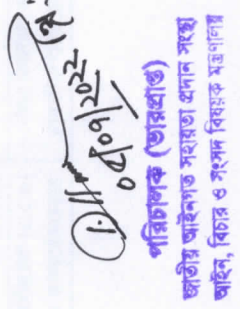 ০৫/০৭/২০২২
পরিচালক (ভারপ্রাপ্ত)
জাতীয় আইনগত সহায়তা প্রদান সংস্থা
আইন, বিচার ও সংসদ বিষয়ক মন্ত্রণালয়